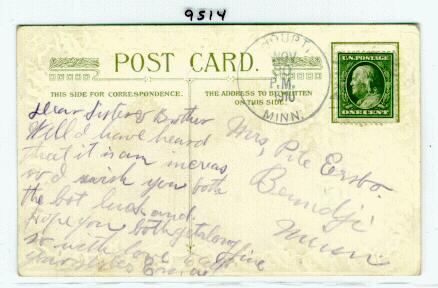 9514
POST CARD.
THIS SIDE FOR CORRESPONDENCE.
THE ADDRESS TO BE WRITTEN
ON THIS SIDE.
NOV
P.M.
MINN.
U.S. POSTAGE
ONE CENT
Dear Sister & Brother
Well I have heard
that it is an increas
so I wish you both
the best luck and
hope you both get along fine
so with love to all
your sister
Mrs, Pete
Bemidji
Minn.